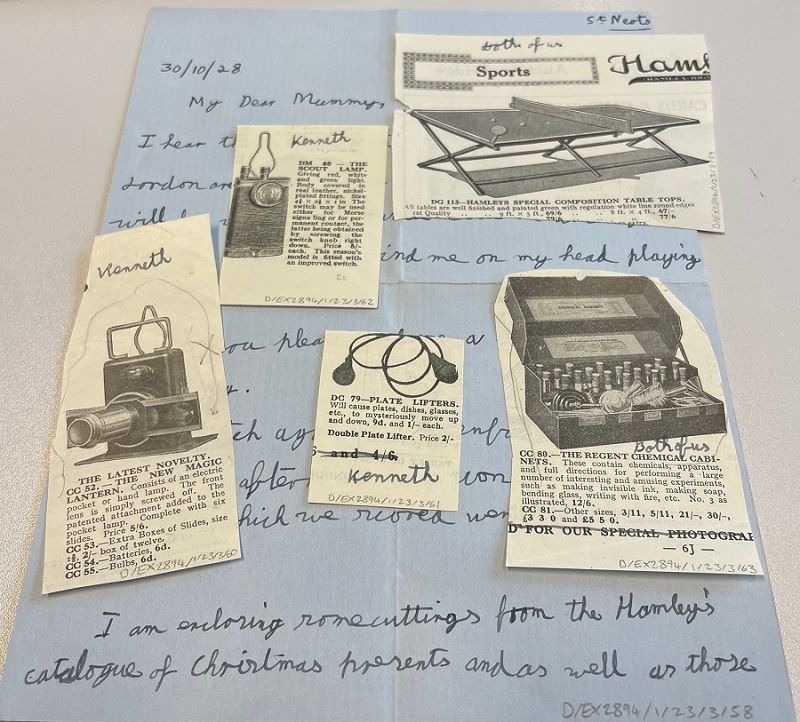 St Neots
30/10/28
My Dear Mummy,
I hear th
London are
will b
ind me on my head playing
You plea
a
after
which we
won
I am enclosing some cuttings from the Hamley's
catalogue of Christmas presents and as well as those
D/EX2894/1/23/3/58
both of us
Sports
Haml
HAMLEY BRO
DG 113—HAMLEYS SPECIAL COMPOSITION TABLE TOPS.
All tables are well finished and painted green with regulation white line round edges
1st Quality .. 9 ft. × 5 ft., 69/6 .. 8 ft. × 4 ft., 67/-
77/6
Kenneth
DM 40 — THE
SCOUT LAMP.
Giving red, white
and green light.
Body covered in
real leather, nickel-
plated fittings. Size
The
switch may be used
either for Morse
signalling or for per-
manent contact, the
latter being obtained
by screwing the
switch knob right
down. Price 5/-
each. This season's
model is fitted with
an improved switch.
D/EX2894/1/23/3/62
Kenneth
THE LATEST NOVELTY.
CC 52. — THE NEW MAGIC
LANTERN. Consists of an electric
pocket or hand lamp. The front
lens is simply screwed off. The
patented attachment added to the
pocket lamp. Complete with six
slides. Price 5/6.
CC 53.—Extra Boxes of Slides, size
2/- box of twelve.
CC 54.—Batteries, 6d.
CC 55.—Bulbs, 6d.
D/EX2894/1/23/3/60
DC 79—PLATE LIFTERS.
Will cause plates, dishes, glasses,
etc., to mysteriously move up
and down, 9d. and 1/- each.
Double Plate Lifter. Price 2/-
and 4/6.
Kenneth
D/EX2894/1/23/3/61
CHEMICAL CABINETS
Both of us
CC 80.—THE REGENT CHEMICAL CABI-
NETS. These contain chemicals, apparatus,
and full directions for performing a large
number of interesting and amusing experiments,
such as making invisible ink, making soap,
bending glass, writing with fire, etc. No. 3 as
illustrated, 12/6.
CC 81.—Other sizes, 3/11, 5/11, 21/-, 30/-,
£3 3 0 and £5 5 0.
D FOR OUR SPECIAL PHOTOGRA
— 6J —
D/EX2894/1/23/3/63